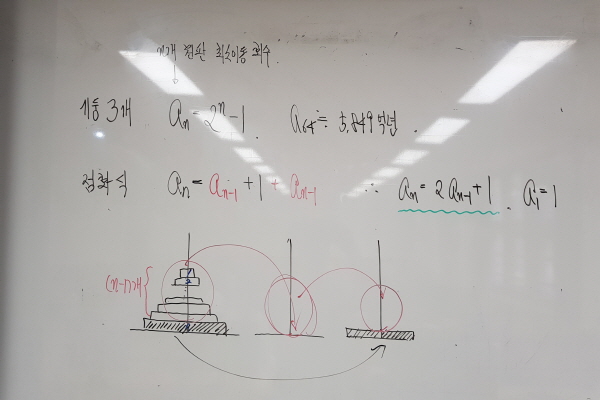 n개 원판 최소이동 회수
기둥 3개 aₙ = 2ⁿ-1. a₆₄ ≒ 5,849억년.
점화식 aₙ = aₙ₋₁ + 1 + aₙ₋₁ ∴ aₙ = 2aₙ₋₁ + 1. a₁ = 1
(n-1)개